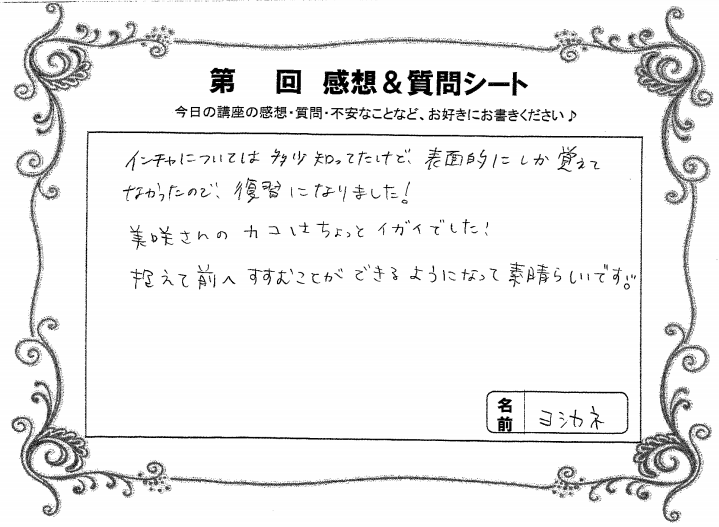 第　回 感想＆質問シート
今日の講座の感想・質問・不安なことなど、お好きにお書きください♪
インチャについては多少知ってたけど、表面的にしか覚えて
なかったので、復習になりました！
美咲さんのカコはちょっとイガイでした！
捉えて前へすすむことができるようになって素晴らしいです。
名前
ヨシカネ